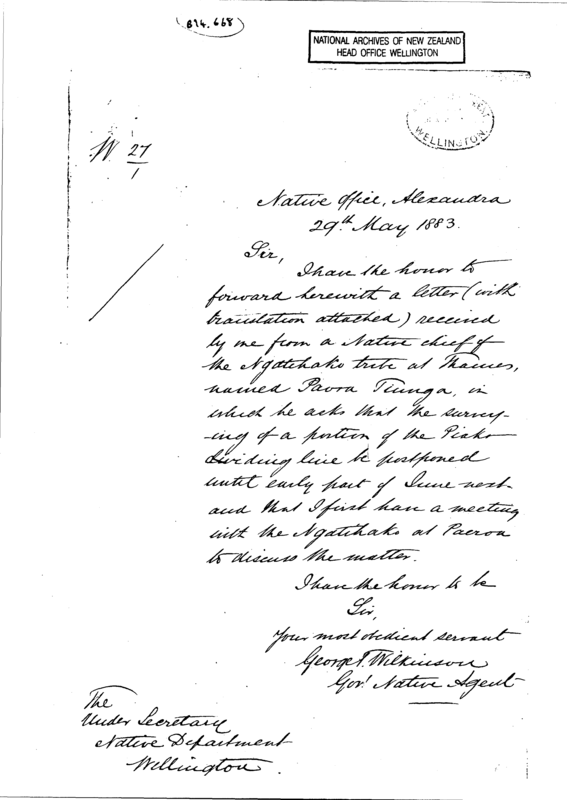 B14.668
NATIONAL ARCHIVES OF NEW ZEALAND
HEAD OFFICE WELLINGTON
WELLINGTON
27
1
Native Office, Alexandra
29th May 1883.
Sir,
I have the honor to
forward herewith a letter (with
translation attached) received
by me from a Native chief of
the Ngatihako tribe at Thames,
named Paora Tiunga, in
which he asks that the survey-
-ing of a portion of the Piako
dividing line be postponed
until early part of June next
and that I first have a meeting
with the Ngatihako at Paeroa
to discuss the matter.
I have the honor to be
Sir,
Your most obedient servant
George T. Wilkinson
Govt Native Agent
The
Under Secretary
Native Department
Wellington.